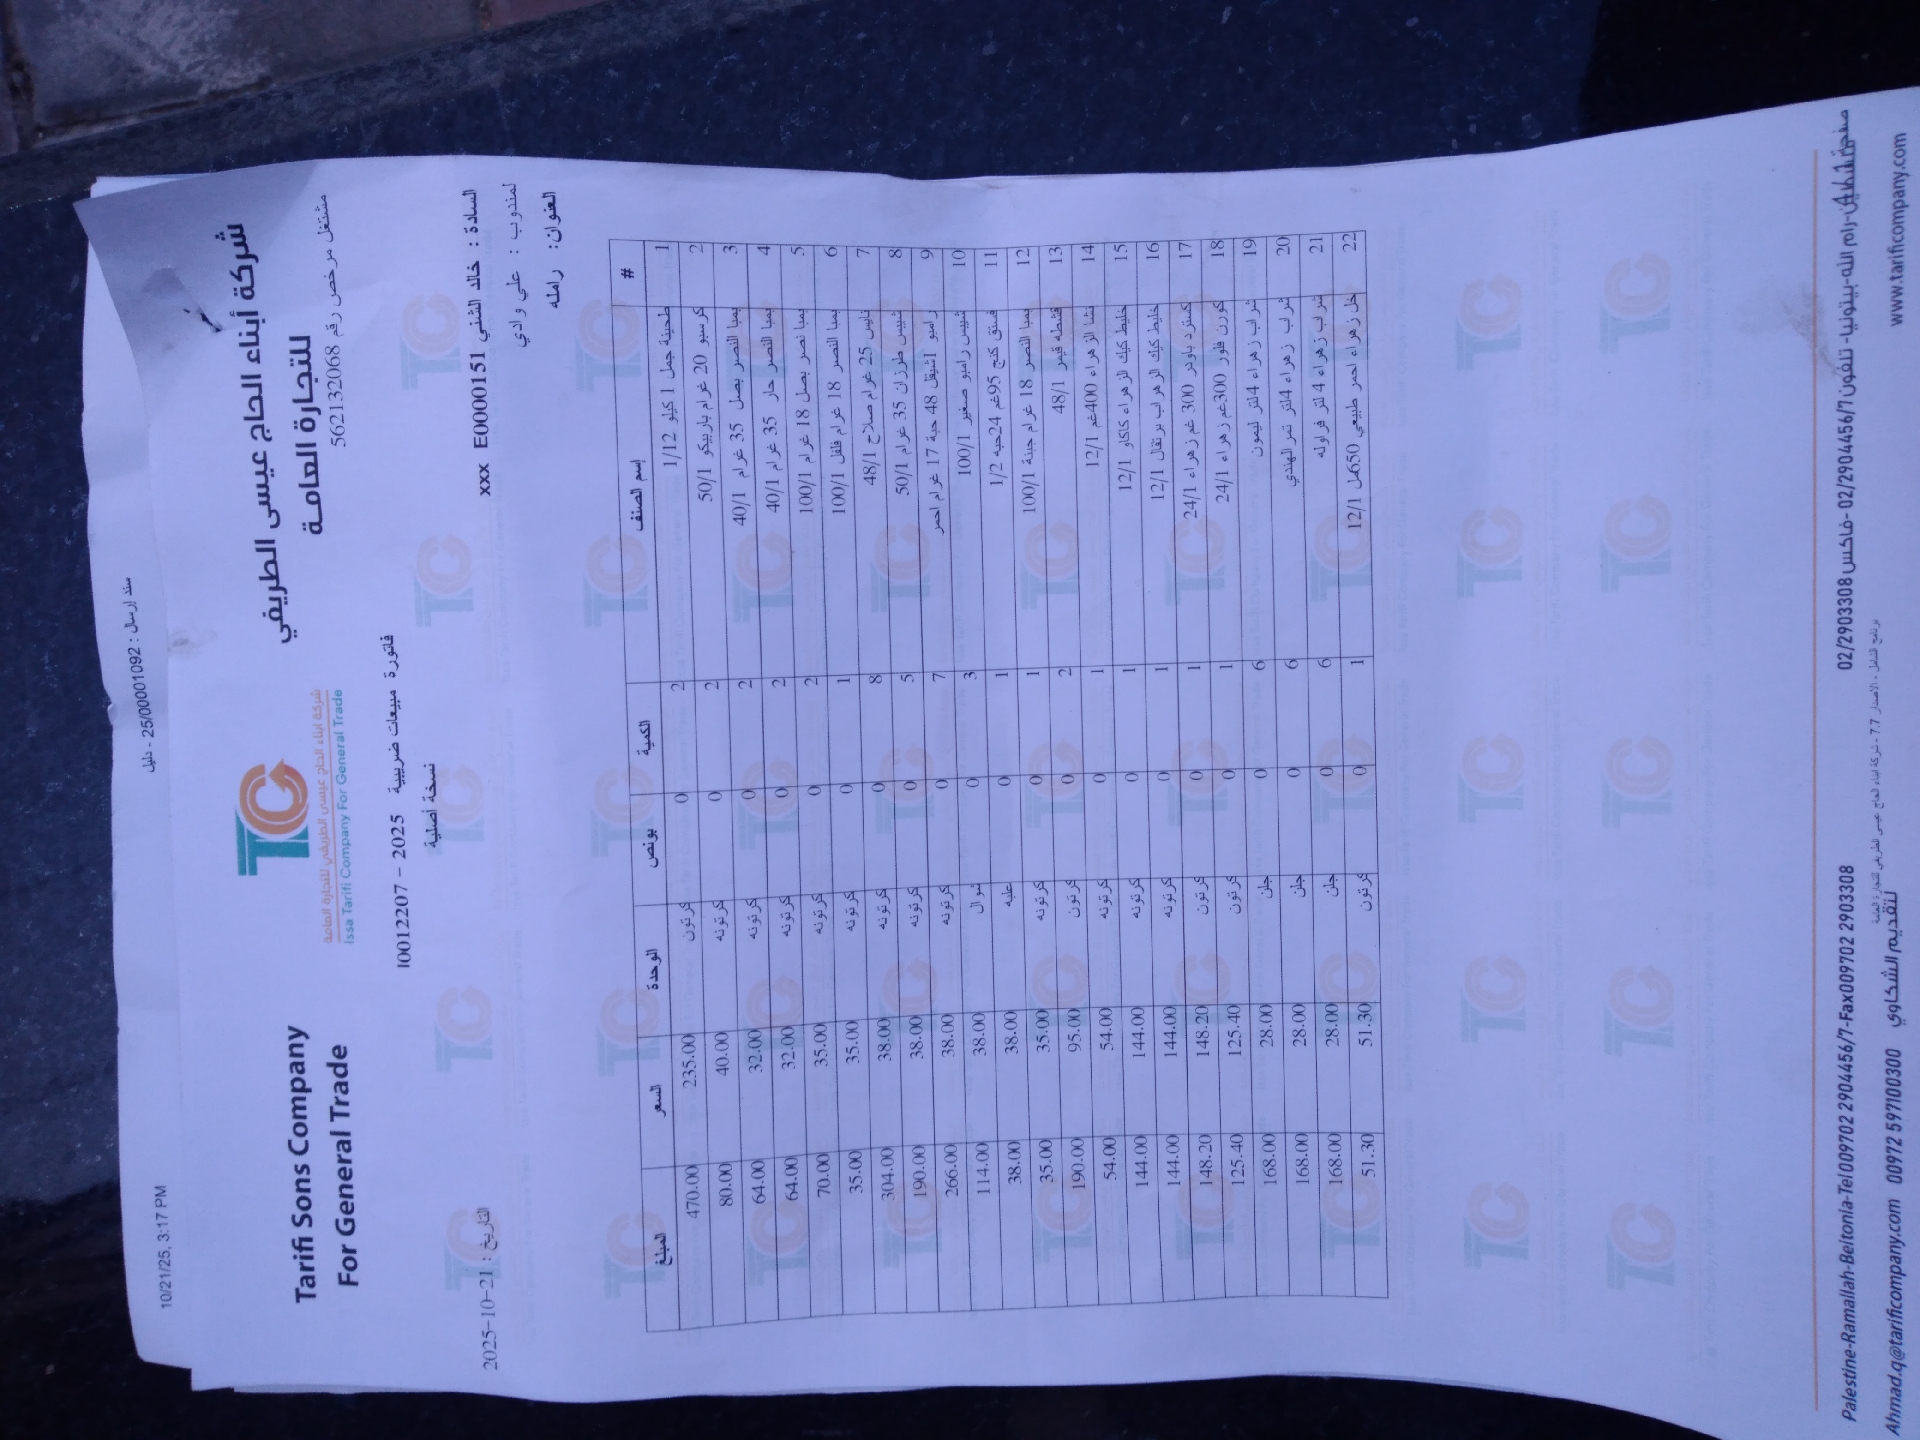 10/21/25, 3:17 PM
سند إرسال : 25/00001092 - دليل
Tarifi Sons Company
For General Trade
TC
شركة أبناء الحاج عيسى الطريفي للتجارة العامة
Issa Tarifi Company For General Trade
شركة أبناء الحاج عيسى الطريفي
للتجارة العامة
مشتغل مرخص رقم 562132068
فاتورة مبيعات ضريبية 2025 – I0012207
نسخة أصلية
التاريخ : 2025-10-21
السادة : خالد الشني E0000151 xxx
لمندوب : علي وادي
العنوان: رامله
# إسم الصنف الكمية بونص الوحدة السعر المبلغ
1 طحينة جمل 1 كيلو 1/12 2 0 كرتون 235.00 470.00
2 كرسبو 20 غرام باربيكو 50/1 2 0 كرتونه 40.00 80.00
3 بمبا النصر بصل 35 غرام 40/1 2 0 كرتونه 32.00 64.00
4 بمبا النصر حار 35 غرام 40/1 2 0 كرتونه 32.00 64.00
5 بمبا نصر بصل 18 غرام 100/1 2 0 كرتونه 35.00 70.00
6 بمبا النصر 18 غرام فلفل 100/1 1 0 كرتونه 35.00 35.00
7 نايس 25 غرام صلاح 48/1 8 0 كرتونه 38.00 304.00
8 شيبس طرزان 35 غرام 50/1 5 0 كرتونه 38.00 190.00
9 رامبو اشيقل 48 حبة 17 غرام احمر 7 0 كرتونه 38.00 266.00
10 شيبس رامبو صغير 100/1 3 0 شوال 38.00 114.00
11 فستق كنج 95غم 24حبه 1/2 1 0 علبه 38.00 38.00
12 بمبا النصر 18 غرام جبنة 100/1 1 0 كرتونه 35.00 35.00
13 قشطه قيمر 48/1 2 0 كرتون 95.00 190.00
14 نشا الزهراء 400غم 12/1 1 0 كرتونه 54.00 54.00
15 خليط كيك الزهراء كاكاو 12/1 1 0 كرتونه 144.00 144.00
16 خليط كيك الزهراء برتقال 12/1 1 0 كرتونه 144.00 144.00
17 كسترد باودر 300 غم زهراء 24/1 1 0 كرتون 148.20 148.20
18 كورن فلور 300غم زهراء 24/1 1 0 كرتون 125.40 125.40
19 شراب زهراء 4لتر ليمون 6 0 جلن 28.00 168.00
20 شراب زهراء 4لتر تمر الهندي 6 0 جلن 28.00 168.00
21 شراب زهراء 4 لتر فراوله 6 0 جلن 28.00 168.00
22 خل زهراء احمر طبيعي 650مل 12/1 1 0 كرتون 51.30 51.30
Palestine-Ramallah-Beitonla-Tel 009702 2904456/7-Fax009702 2903308
فلسطين-رام الله-بيتونيا- تلفون 02/2904456/7 -فاكس 02/2903308
برنامج الشامل - الاصدار 7.7 - شركة ابناء الحاج عيسى الطريفي للتجارة العامة
Ahmad.q@tarificompany.com 00972 597100300 لتقديم الشكاوي
www.tarificompany.com